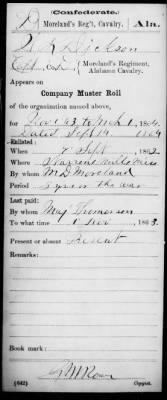 (Confederate.)
D Moreland's Reg't, Cavalry. Ala.
Dickson
Capt, Co. D, Moreland's Regiment, Alabama Cavalry.
Appears on
Company Muster Roll
of the organization named above,
for Nov 1 63 to Mch 1, 1864.
Dated Sept 14 1864
Enlisted:
When Sept , 186
Where
By whom M D Moreland
Period 3 years or the war
Last paid:
By whom Maj Thomason
To what time 1 Nov , 1863.
Present or absent Present
Remarks:
(642) Copyist.